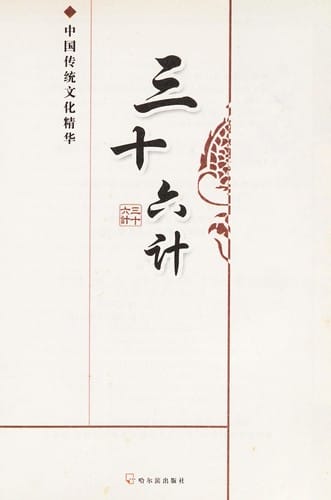 ◆中国传统文化精华
三十六计
三十
六計
哈尔滨出版社